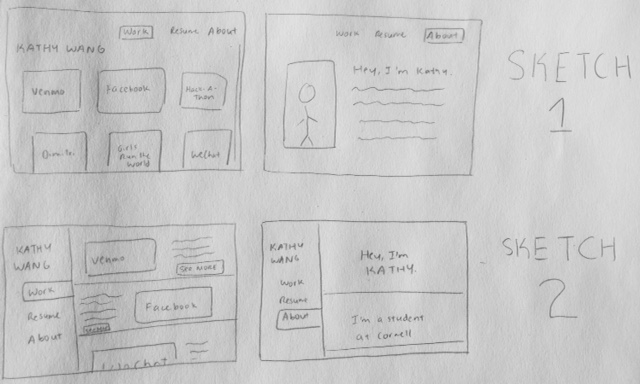 Work Resume About
KATHY WANG
Venmo
Facebook
Hack-A-
Thon
Girls
Run the
World
WeChat
Work Resume About
Hey, I'm Kathy.
SKETCH
1
KATHY
WANG
Work
Resume
About
Venmo
See More
Facebook
See More
WeChat
KATHY
WANG
Work
Resume
About
Hey, I'm
KATHY.
I'm a student
at Cornell
SKETCH
2